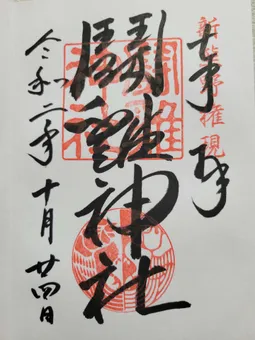 新熊野権現
奉拝
鬪雞神社
鬪雞
神社
令和二年十月廿四日